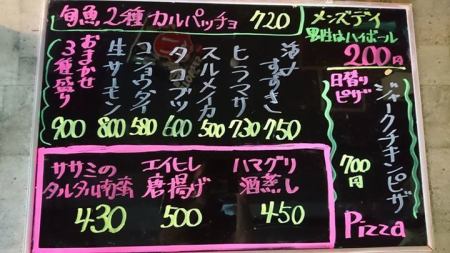 旬魚2種カルパッチョ 720
メンズデイ
男性はハイボール
200円
日替り
ピザ
ジャークチキンピザ
700円
Pizza
活〆すずき 750
ヒラマサ 730
スルメイカ 500
タコブツ 600
コショウダイ 580
生サーモン 800
おまかせ
3種盛り 900
ササミの
タルタル南蛮
430
エイヒレ
唐揚げ
500
ハマグリ
酒蒸し
450